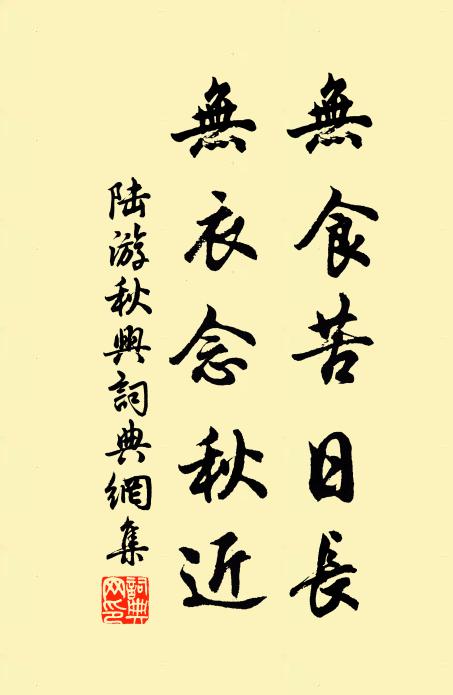 無食苦日長
無衣念秋近
陆游秋興詞典網集
詞典
网印